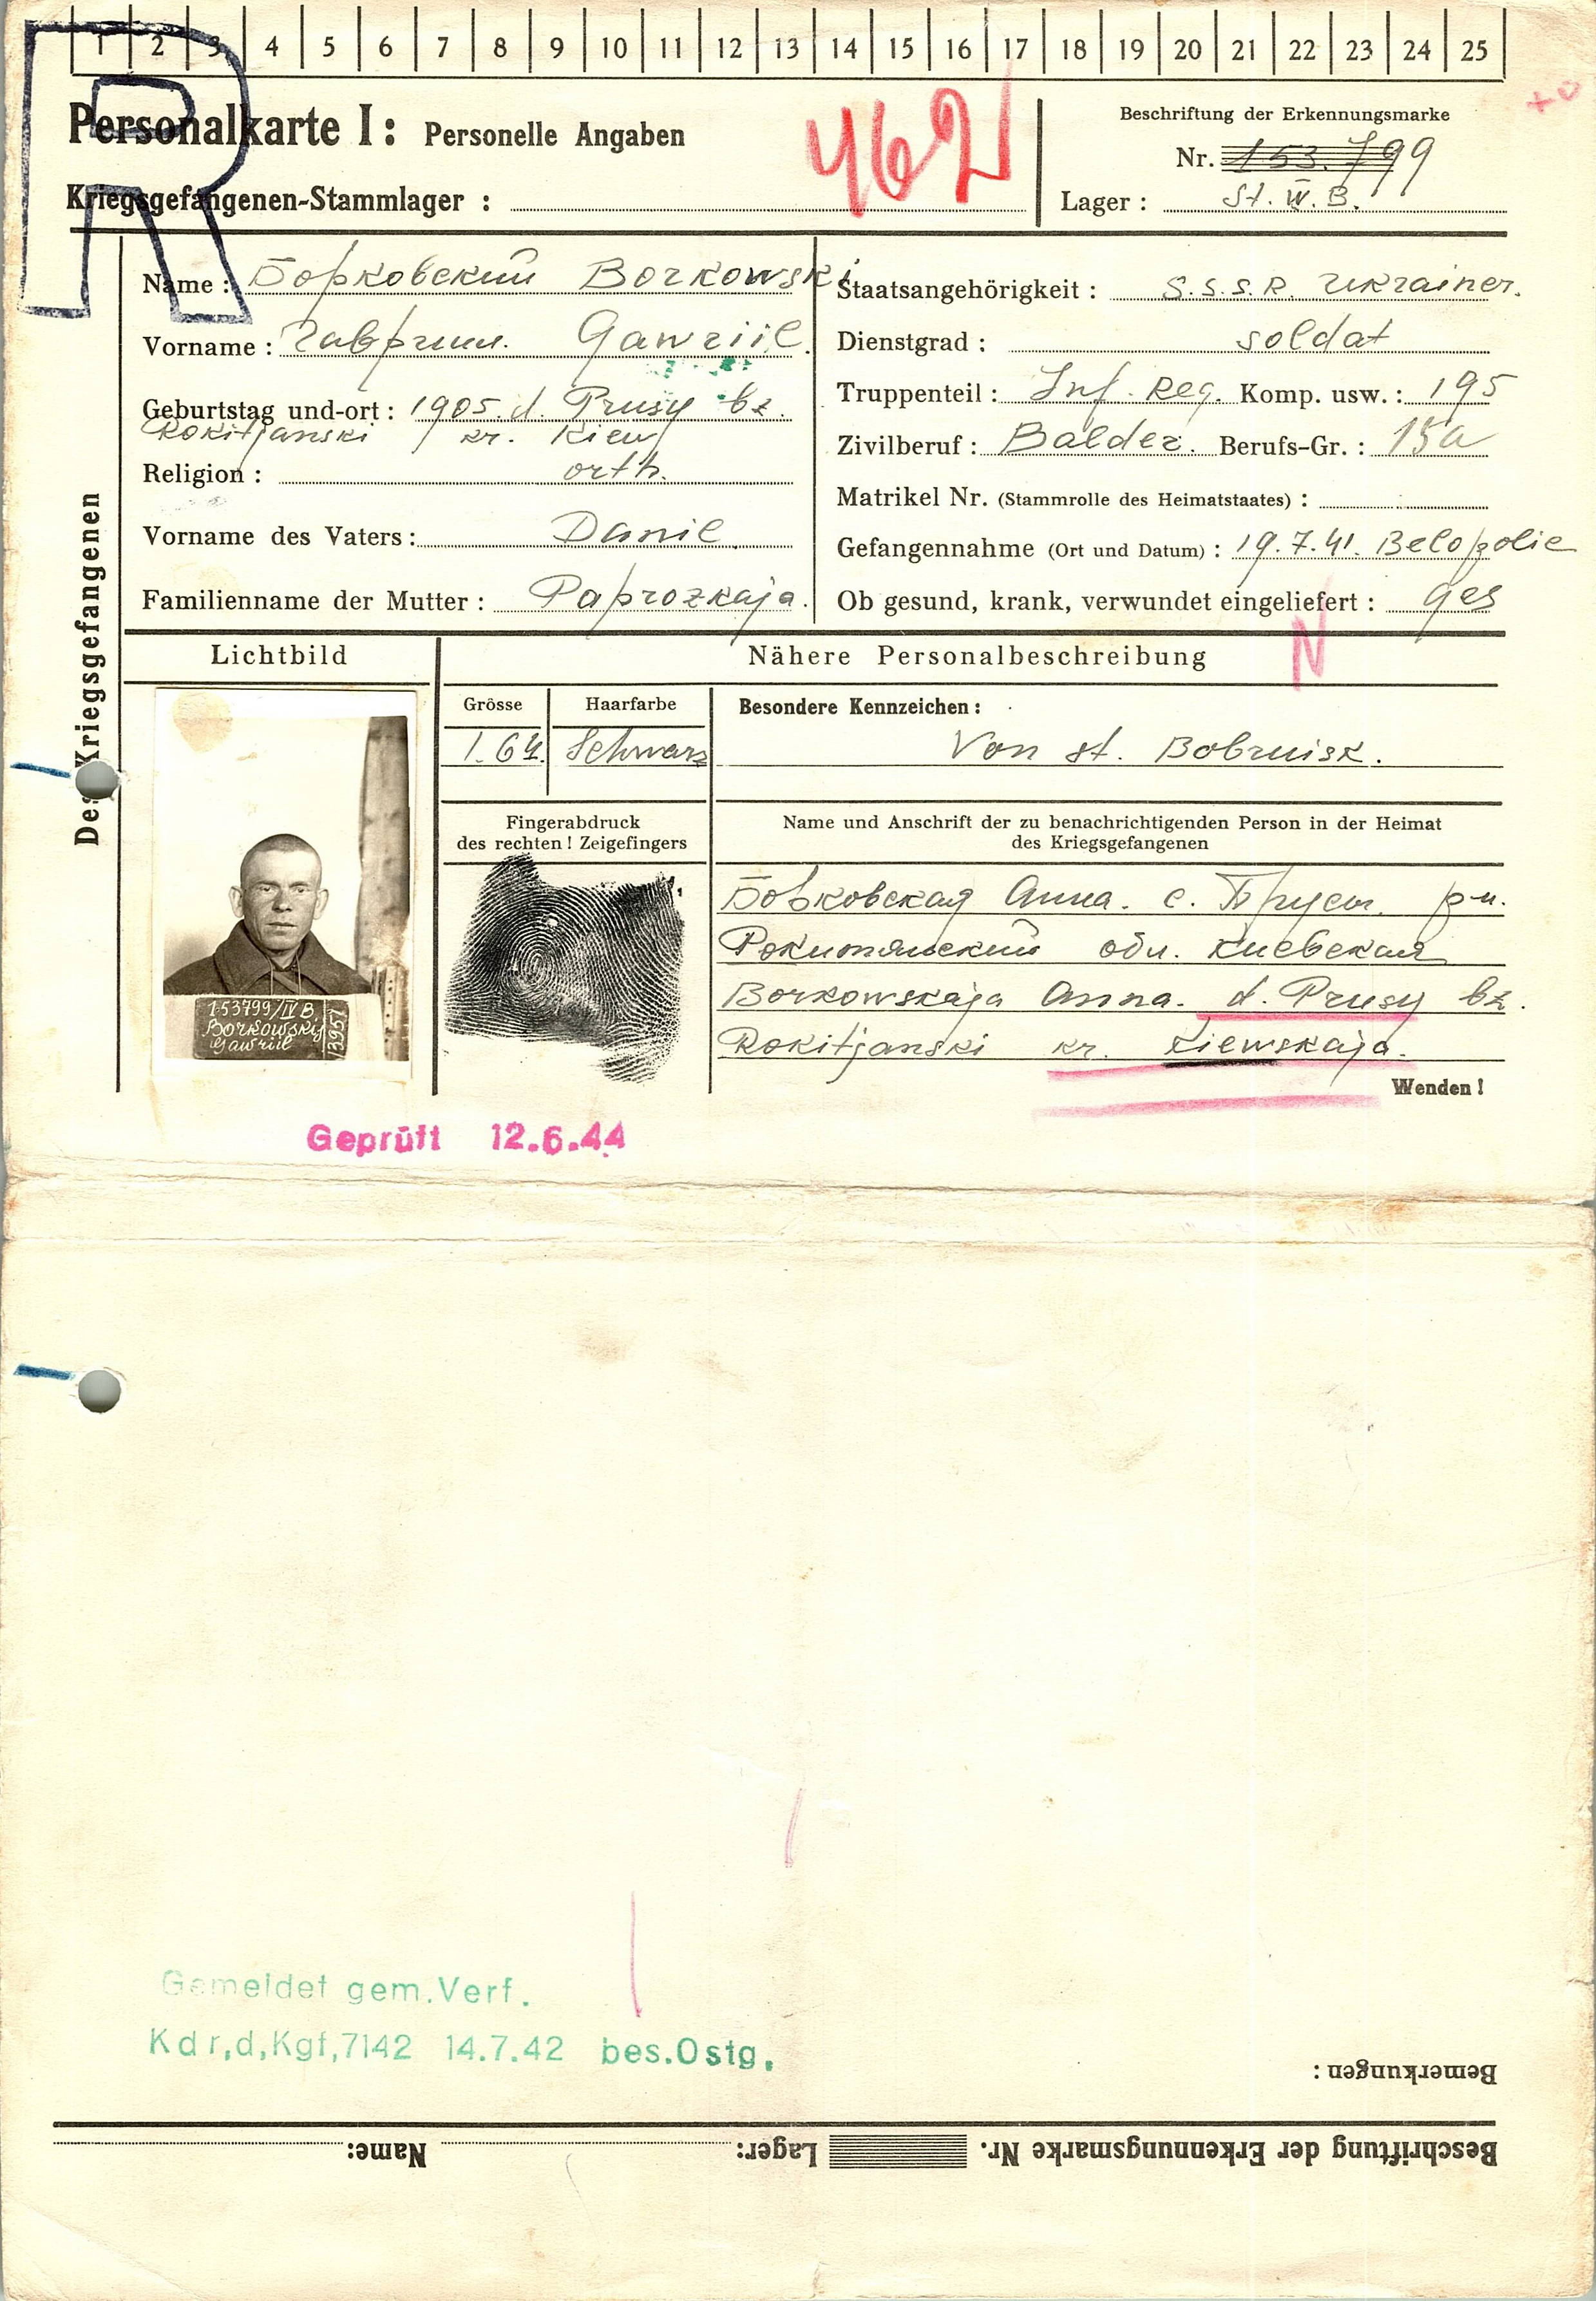 1 2 3 4 5 6 7 8 9 10 11 12 13 14 15 16 17 18 19 20 21 22 23 24 25
R
Personalkarte I: Personelle Angaben
462
Beschriftung der Erkennungsmarke
Nr. 153.799
Kriegsgefangenen-Stammlager :
Lager : St. IV. B.
Des Kriegsgefangenen
Name : Борковский Borkowski
Vorname : Гавриил. Gawriil.
Geburtstag und-ort : 1905. d. Prusy bz.
Rokitjanski kr. Kiew
Religion : orth.
Vorname des Vaters : Danil.
Familienname der Mutter : Paprozkaja.
Staatsangehörigkeit : S.S.S.R. Ukrainer.
Dienstgrad : soldat
Truppenteil : Inf. Reg. Komp. usw. : 195
Zivilberuf : Balder. Berufs-Gr. : 15a
Matrikel Nr. (Stammrolle des Heimatstaates) :
Gefangennahme (Ort und Datum) : 19.7.41. Belopolie
Ob gesund, krank, verwundet eingeliefert : ges
N
Lichtbild
Nähere Personalbeschreibung
Grösse
1.64.
Haarfarbe
Schwarz
Besondere Kennzeichen :
Von st. Bobruisk.
Fingerabdruck
des rechten ! Zeigefingers
Name und Anschrift der zu benachrichtigenden Person in der Heimat
des Kriegsgefangenen
Борковская Анна. с. Прусы. р-н.
Рокитянский обл. Киевская
Borkowskaja Anna. d. Prusy bz.
Rokitjanski kr. Kiewskaja.
153799/IV B
Borkowskij
Gawriil
Wenden !
Geprüft 12.6.44
Gemeldet gem.Verf.
Kdr,d,Kgf,7142 14.7.42 bes.Ostg.
Bemerkungen :
Beschriftung der Erkennungsmarke Nr. Lager: Name: